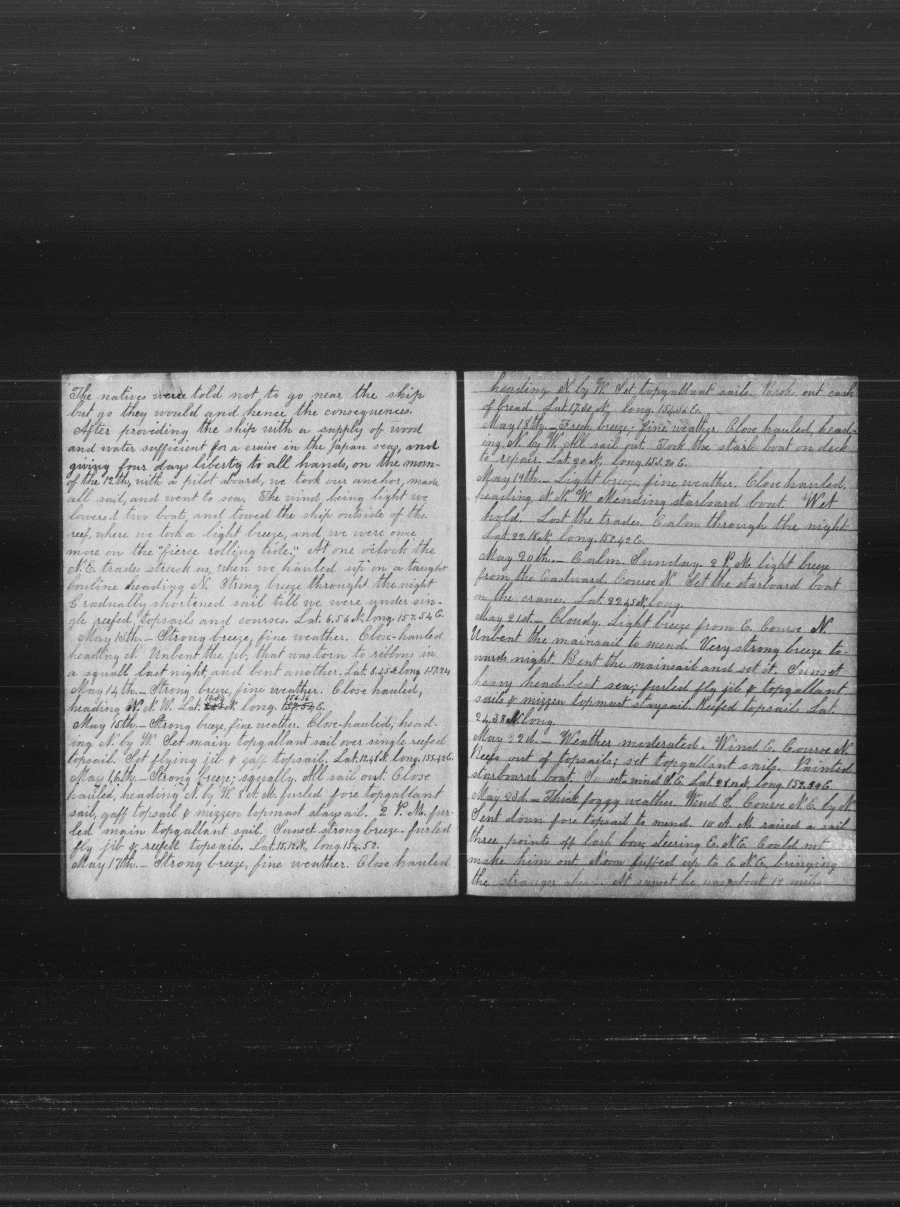 The natives were told not to go near the ship
but go they would and hence the consequences.
After providing the ship with a supply of wood
and water sufficient for a cruise in the Japan seas, and
giving four days liberty to all hands, on the morn-
of the 12th, with a pilot aboard, we took our anchor, made
all sail, and went to sea. The wind being light we
lowered two boats, and towed the ship outside of the
reef, where we took a light breeze, and we were once
more on the "fierce rolling tide." At one o'clock the
N.E. trades struck us, when we hauled up on a taught
bowline heading N. Strong breeze through the night
Gradually shortened sail till we were under sin-
gle reefed, topsails and courses. Lat. 6.56 N, long. 157.54 E.
May 13th.— Strong breeze, fine weather. Close-hauled,
heading N. Unbent the jib, that was torn to ribbons in
a squall last night, and bent another. Lat. 8.45 N long. 157.24
May 14th.— Strong breeze, fine weather. Close hauled,
heading N. N. W. Lat. N. long. 156.16 E.
May 15th.— Strong breeze, fine weather. Close-hauled, head-
ing N. by W. Set main topgallant sail over single reefed
topsail. Set flying jib & gaff topsail. Lat. N. long. 155.42 E.
May 16th.— Strong breeze; squally. All sail out. Close
hauled, heading N. by W. 8 A. M. furled fore topgallant
sail, gaff topsail & mizzen topmast staysail. 2 P. M. fur-
led main topgallant sail. Sunset strong breeze. furled
fly jib & reefed topsails. Lat. 15.12 N., long 154.52.
May 17th.— Strong breeze, fine weather. Close hauled
heading N. by W. Set topgallant sails. Broke out cask
of bread. Lat. 17.32 N, long. E.
May 18th.— Fresh breeze; fine weather. Close hauled, head-
ing N. by W. All sail out. Took the starb. boat on deck
to repair. Lat. 20 N., long. 151.20 E.
May 19th.— Light breeze, fine weather. Close hauled,
heading N. N. W. Mending starboard boat. Wet
hold. Lost the trades. Calm through the night
Lat. 22. N. long. 152.42 E.
May 20th.— Calm. Sunday. 2 P. M. light breeze
from the Eastward. Course N. Set the starboard boat
on the cranes. Lat. 22.45 N. long.
May 21st.— Cloudy. Light breeze from E. Course N.
Unbent the mainsail to mend. Very strong breeze to-
wards night. Bent the mainsail and set it. Sunset
heavy head-beat sea; furled fly jib & topgallant
sails & mizzen topmast staysail. Reefed topsail. Lat.
24.38 N. long.
May 22d.— Weather moderated. Wind E. Course N.
Reefs out of topsails; set topgallant sails. Painted
starboard boat. wind S.E. Lat. long. 152.39 E.
May 23d.— Thick foggy weather. Wind S. Course N.E. by N.
Sent down fore topsail to mend. 10 A. M. raised a sail
three points off larb. bow, steering E. N.E. Could not
make him out. Noon kept up to E. N.E., bringing
the stranger At sunset he was about 12 miles